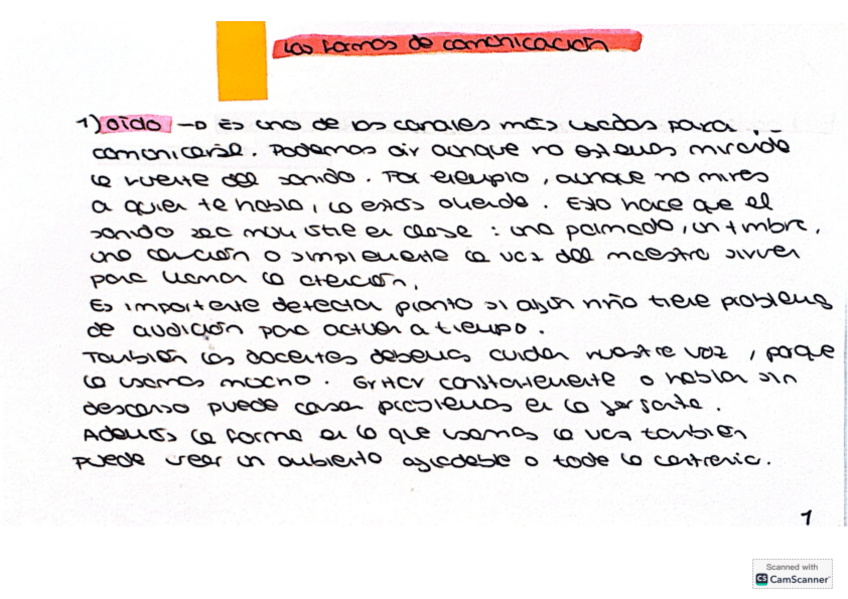 Las formas de comunicación
1) oído → Es uno de los canales más usados para
comunicarse. Podemos oír aunque no estemos mirando
la fuente del sonido. Por ejemplo, aunque no mires
a quien te habla, lo estás oyendo. Esto hace que el
sonido sea muy útil en clase: una palmada, un timbre,
una canción o simplemente la voz del maestro sirven
para llamar la atención.
Es importante detectar pronto si algún niño tiene problemas
de audición para actuar a tiempo.
También los docentes debemos cuidar nuestra voz, porque
la usamos mucho. Gritar constantemente o hablar sin
descanso puede causar problemas en la garganta.
Además la forma en la que usamos la voz también
puede crear un ambiente agradable o todo lo contrario.
1
Scanned with
CS CamScanner